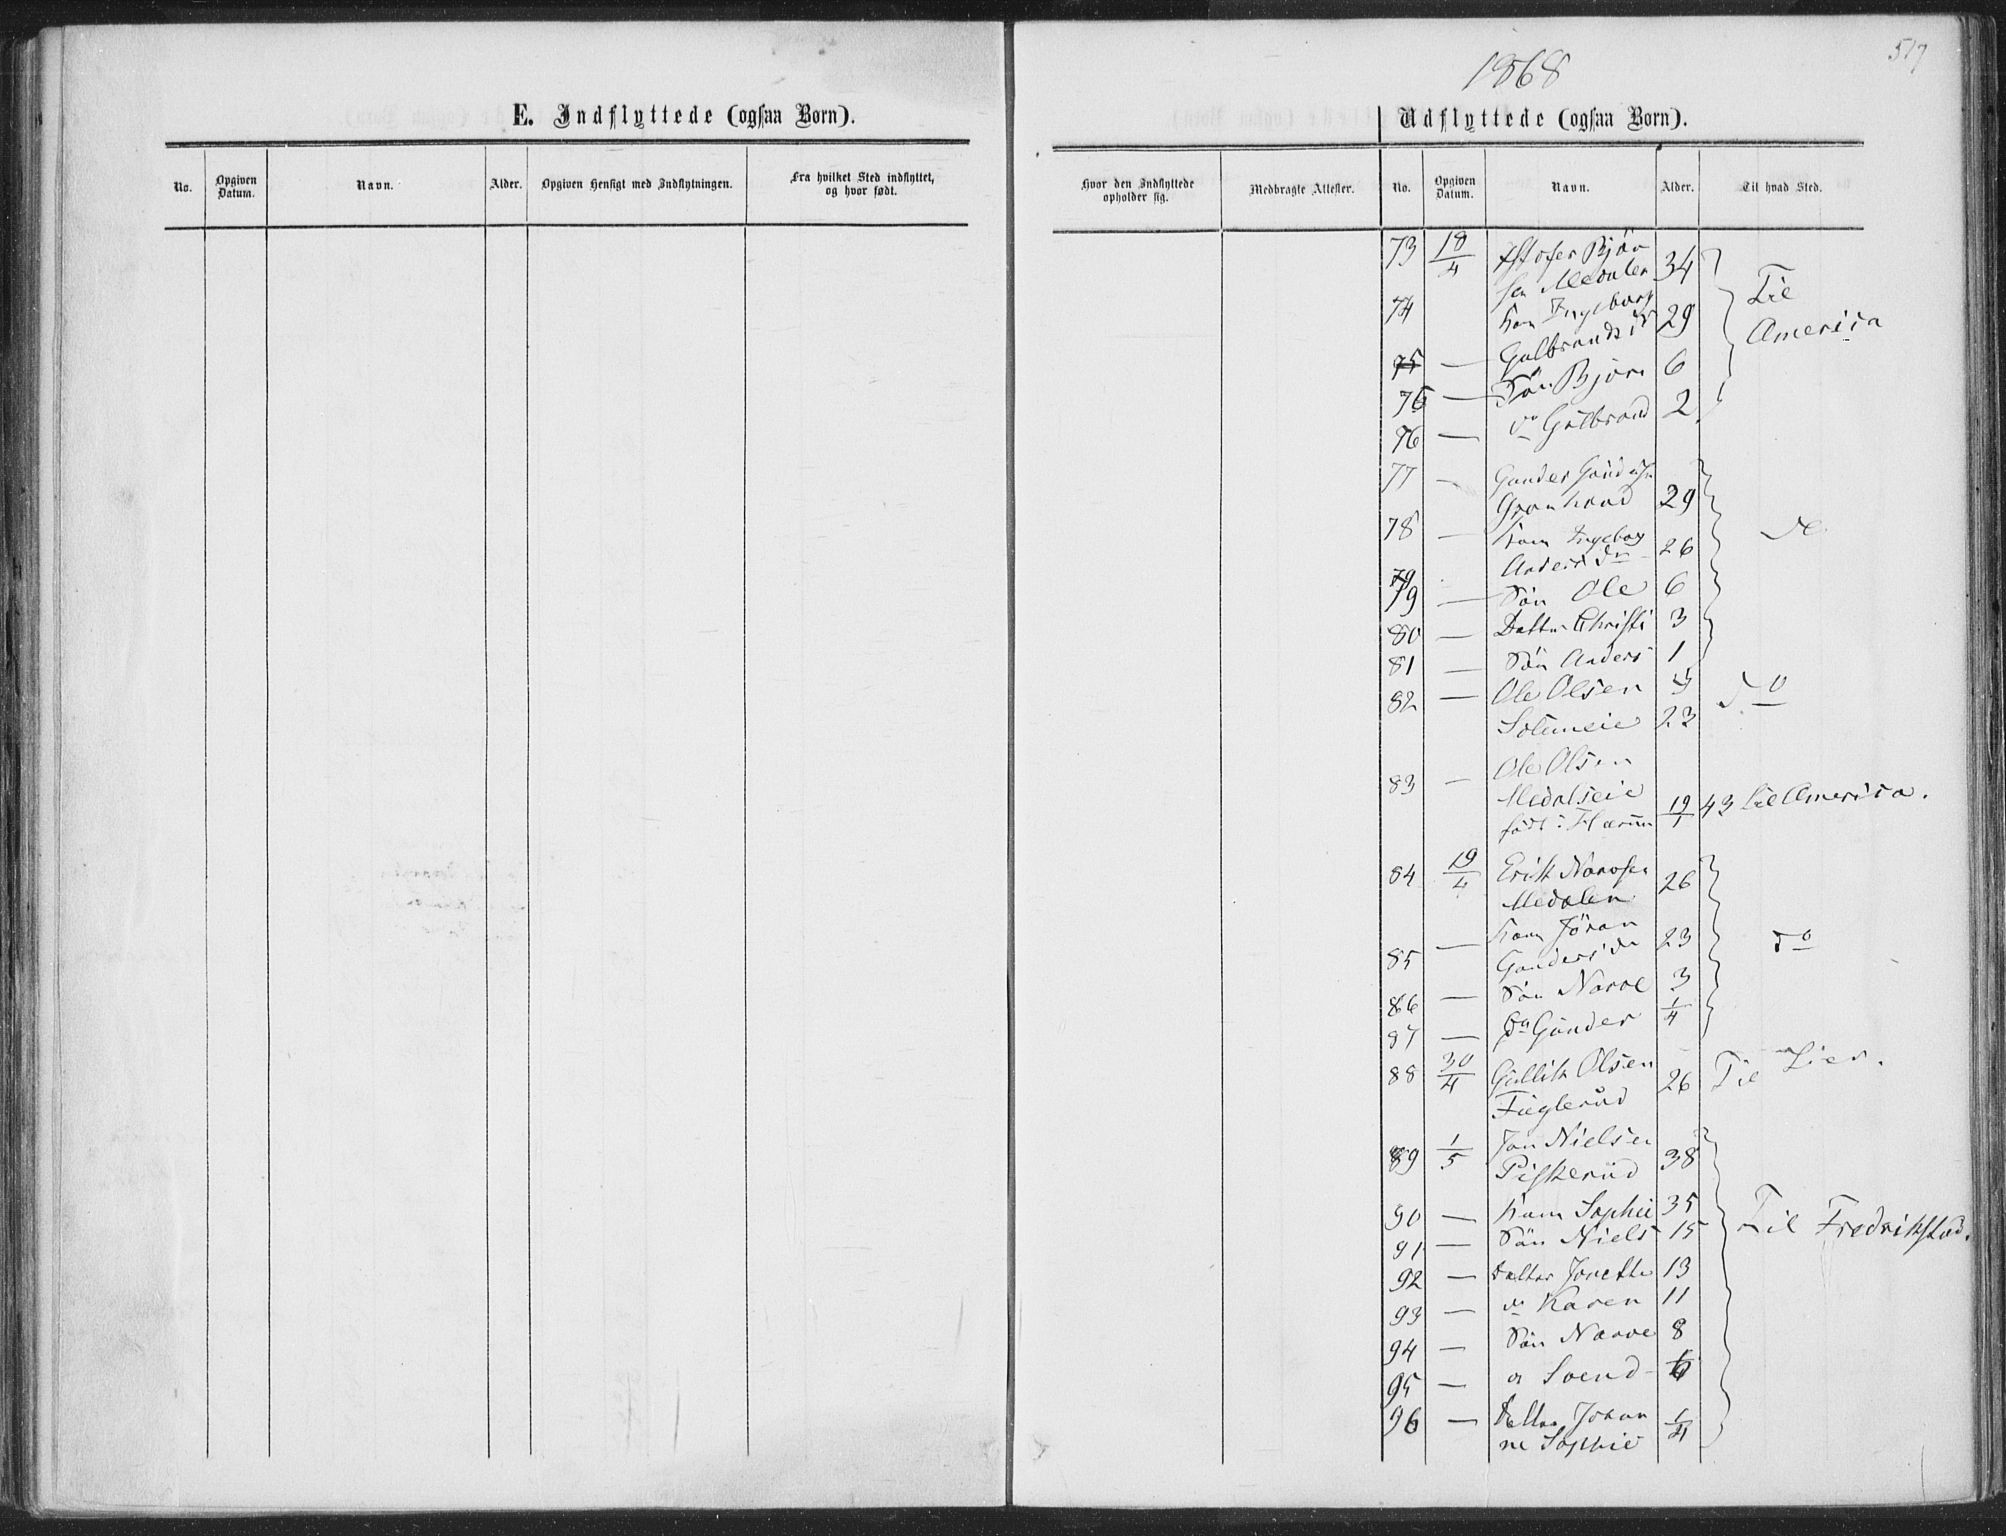 517
1868
E. Indflyttede (ogsaa Børn).
Udflyttede (ogsaa Børn).
No. Opgiven Datum. Navn. Alder. Opgiven Hensigt med Indflytningen. Fra hvilket Sted indflyttet, og hvor født.
Hvor den Indflyttede opholder sig. Medbragte Attester. No. Opgiven Datum. Navn. Alder. Til hvad Sted.
73 18/4 Bjørn
sen Medalen 34
Til
74 Kone Ingeborg
Gulbrandsdr 29
America
75 — Søn Bjørn 6
76 — do Gulbrand 2
76 —
77 — Gunder
29
78 — Kone Ingeborg
Andersdr 26
79
79 — Søn Ole 6
80 — Datter Christi 3
81 — Søn Anders 1
82 — Ole Olsen do
Solumeie 23
83 — Ole Olsen
Medalseie
født i 19/1 43 til America.
84 19/4 Erik Narvesen
Medalen 26
85 — Kone Jöran
Gundersdr 23 do
86 — Søn Narve 3
87 — do Gunder 1/4
88 30/4 Gullik Olsen 26 Til Lier.
Fuglerud
89 1/5 Jon Nielsen
Piskerud 38
90 — Kone Sophie 35
91 — Søn Niels 15 Til Fredrikstad.
92 — Datter Jonette 13
93 — do Karen 11
94 — Søn Narve 8
95 — do Svend 6
96 — Datter Johan
ne Sophie 1/4